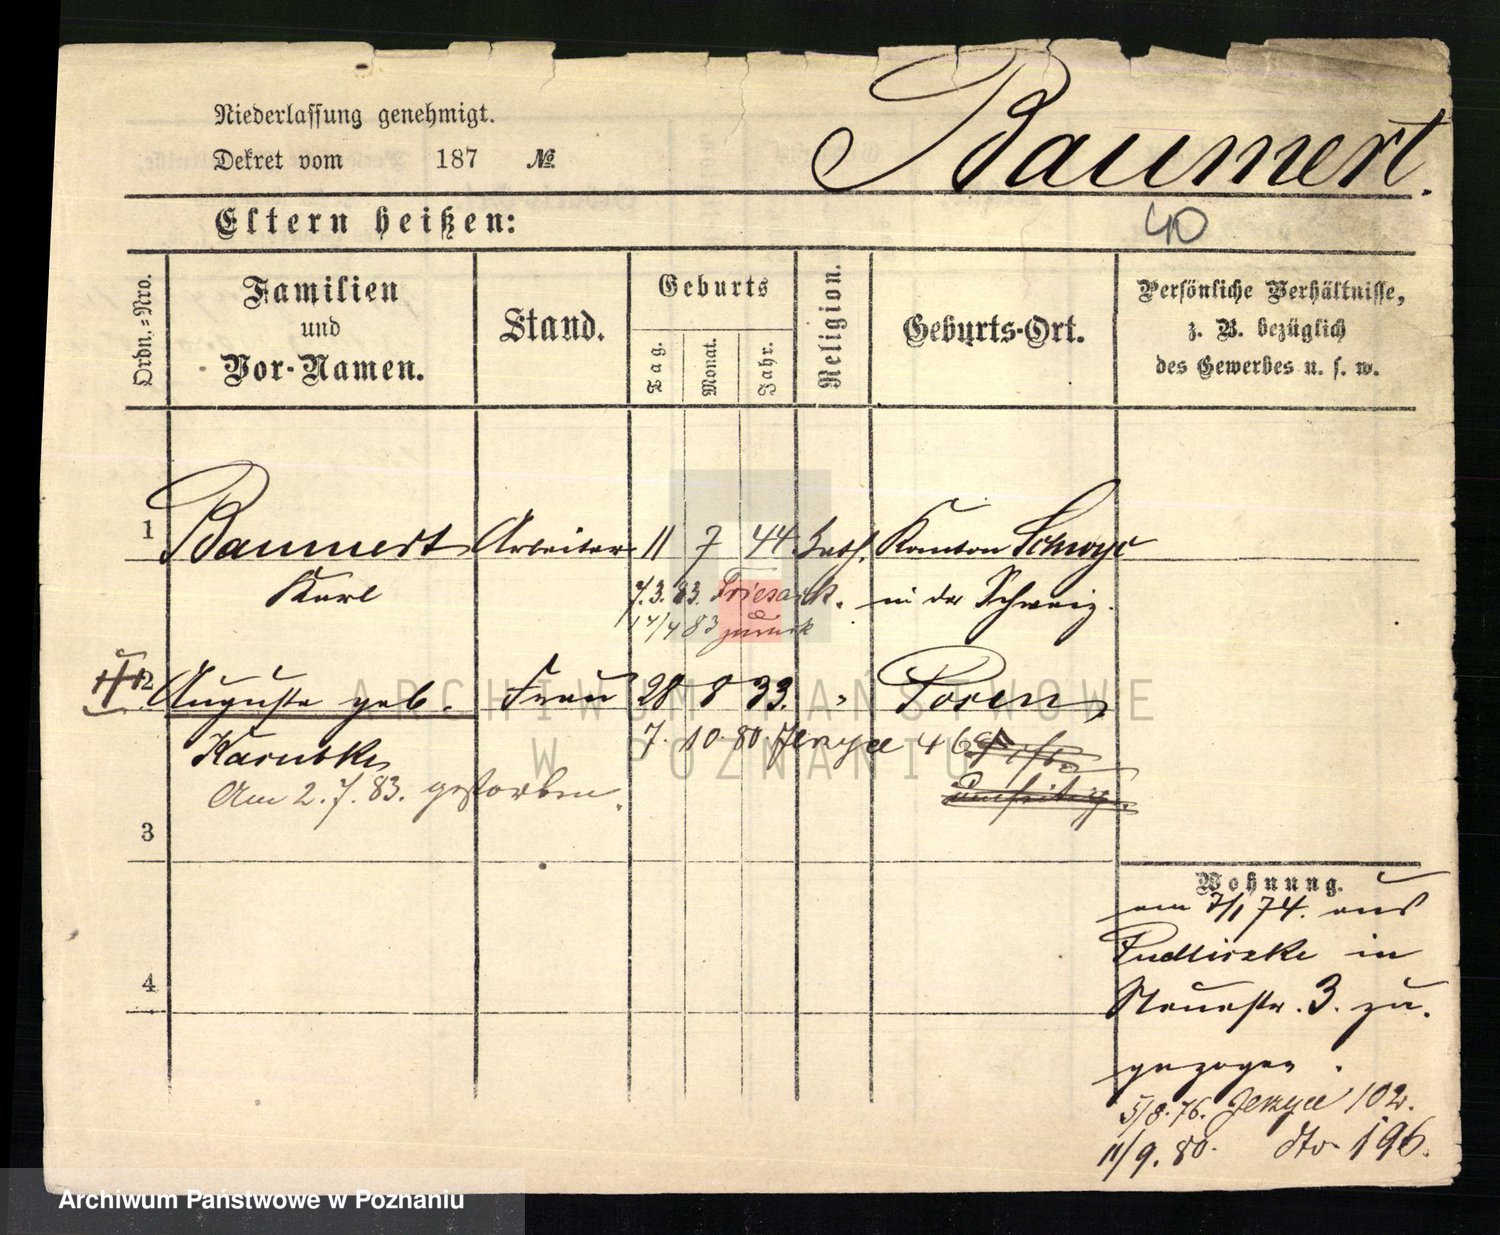 Niederlassung genehmigt.
Dekret vom 187 №
Baumert.
Eltern heißen:
40
Ordn.-Nro.
Familien
und
Vor-Namen.
Stand.
Geburts
Tag.
Monat.
Jahr.
Religion.
Geburts-Ort.
Persönliche Verhältnisse,
z. B. bezüglich
des Gewerbes u. s. w.
1 Baumert Arbeiter 11 7 44 kath. Kanton Schwyc
Karl in der Schweiz.
7.3.83. Priesack.
14/4 83 zurück
2 Auguste geb. Frau 28 8 33. " Posen
Karutzke
7. 10 80. Jerzyce 46
umseitig.
Am 2.7.83. gestorben.
3
4
Wohnung.
am 2/1 74. aus
Pudliszke in
Neuestr. 3. zu.
gezogen.
5/8.76. Jerzyce 102.
11/9.80. dto 196.
ARCHIWUM PAŃSTWOWE
W POZNANIU
Archiwum Państwowe w Poznaniu